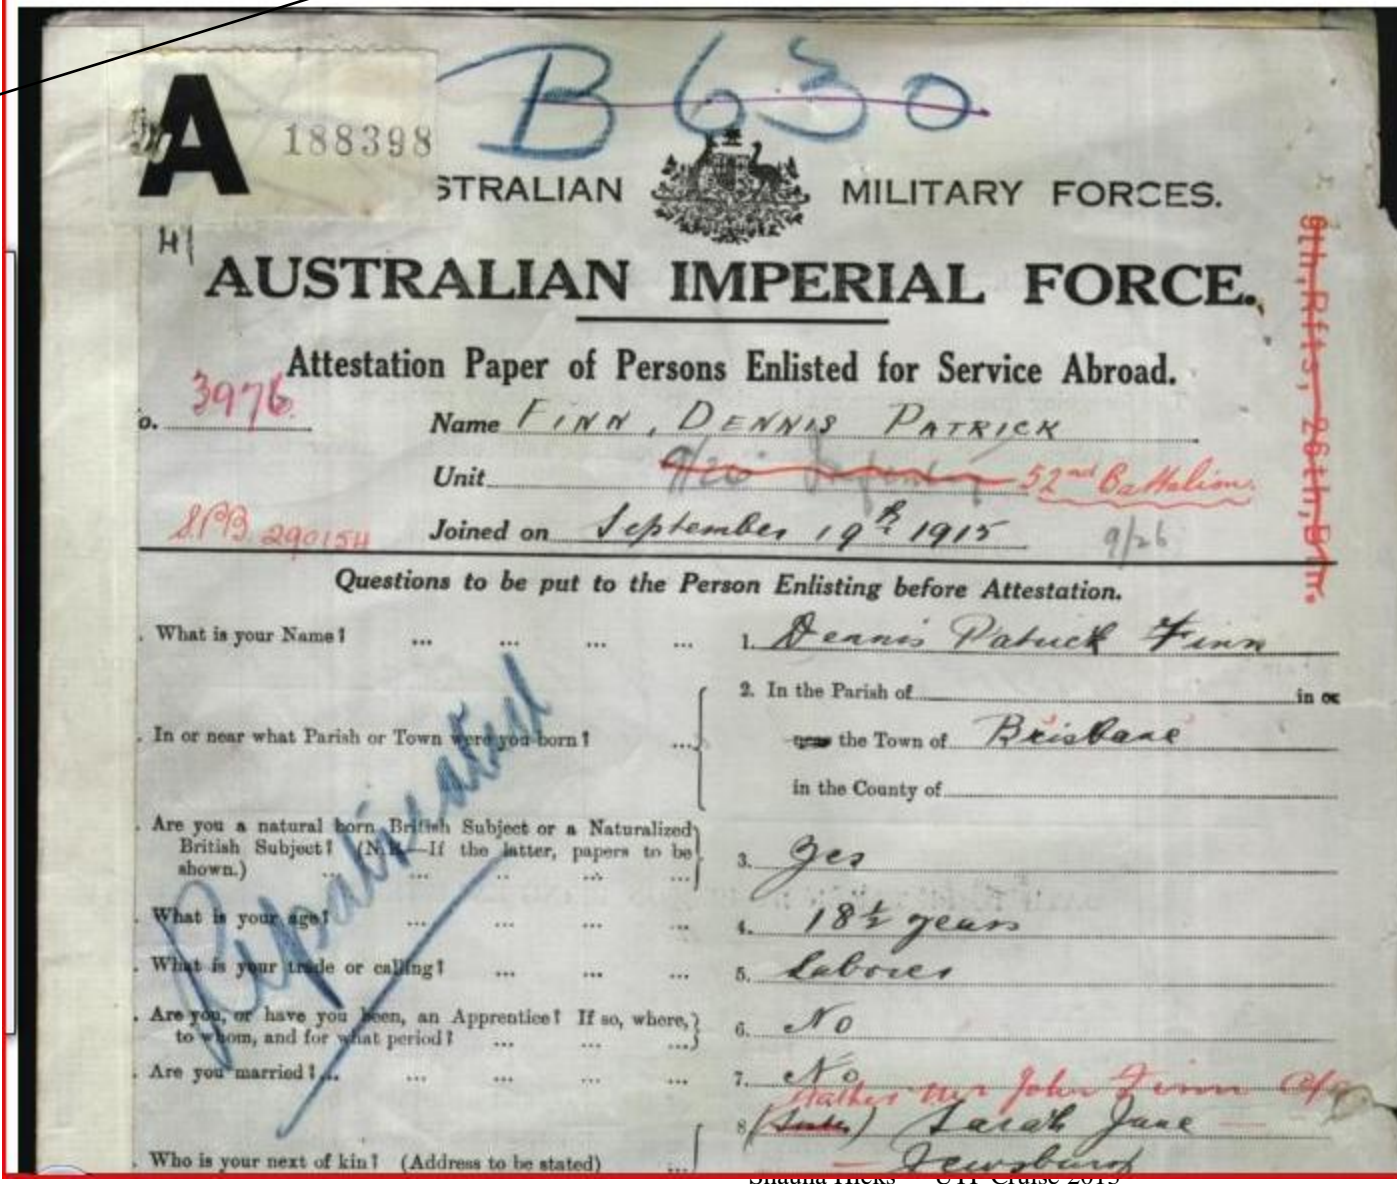 B 630
A 188398
STRALIAN MILITARY FORCES.
H
AUSTRALIAN IMPERIAL FORCE.
9th, Rfts, 26th, Bn.
Attestation Paper of Persons Enlisted for Service Abroad.
o. 3976
Name FINN, DENNIS PATRICK
Unit 9/26 Infantry 52nd Battalion.
290154
Joined on September 19th 1915 9/26
Questions to be put to the Person Enlisting before Attestation.
. What is your Name? ... ... ... ... 1. Dennis Patrick Finn
2. In the Parish of in or
. In or near what Parish or Town were you born? ... near the Town of Brisbane
in the County of
. Are you a natural born British Subject or a Naturalized
British Subject? (N.B.—If the latter, papers to be
shown.) ... ... ... ... ... 3. Yes
. What is your age? ... ... ... ... 4. 18½ years
. What is your trade or calling? ... ... ... 5. Laborer
. Are you, or have you been, an Apprentice? If so, where,
to whom, and for what period? ... ... ... 6. No
. Are you married? ... ... ... ... ... 7. No
Repatriated
Father Mr John Finn
8. (Sister) Sarah Jane
. Who is your next of kin? (Address to be stated) ...
Shauna Hicks UTP Cruise 2015